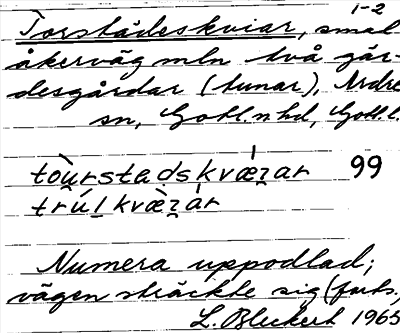 1-2
Torstädeskviar, smal
åkerväg mln två går-
desgårdar (tunar), Ardre
sn, Gotl. n hd, Gotl. l.
tòu̯rstadskvǽʒar 99
trúlkvæ̀ʒár
Numera uppodlad;
vägen sträckte sig (forts.,
L. Bleckert 1965